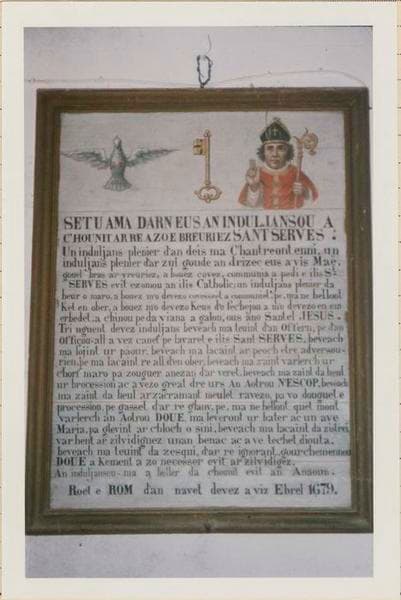 SETU AMA DARN EUS AN INDULJANSOU A
C'HOUNIT AR RE A ZO E BREURIEZ SANT SERVES :
Un induljans plenier d'an deis ma C'hantreont enni, un
induljans plenier d'ar zul goude an drizec eus a vis Mae,
goüel bras ar vreuriez, a bouez covez, communia a pedi e ilis St
SERVES evit ezomou an ilis Catholic; un induljans plenier da
heur o maro, a bouez m'o devezo covesseet a communiet, pe, ma ne hellont
Ket en ober, a bouez m'o devezo Keus d'o fec'hejou a m'o devezo en em
erbedet, a c'hinou pe da viana a galon, ous ano Santel JESUS.
Tri uguent devez induljans beveach ma teuint d'an offern, pe d'an
officou-all a vez canet pe lavaret e ilis Sant SERVES, beveach
ma lojint ur paour, beveach ma lacaint ar peoch etre adversou-
rien, pe ma lacaint re all d'en ober, beveach ma zaint varlerch ur
chorf maro pa zouguer anezan d'ar veret, beveach ma zaint da heul
ur brocession ac a vezo great dre urs An Aotrou NESCOP, beveach
ma zaint da heul ar zacramant meulet ravezo, pa vo douguet e
procession, pe gasset d'ar re glanv, pe, ma ne hellont quet mont
varlerch an Aotrou DOUE, ma leveront ur Pater ac un ave
Maria, pa glevint ar chloch o sini, beveach ma lacaint da zistrei
var hent ar zilvidiguez unan benac ac a ve techet diouta,
beveach ma teuint da zesqui, d'ar re ignorant, gourc'hemennou
DOUE a Kement a zo necesser evit ar zilvidigez.
An induljansou-ma a heller da c'hounit evit an Anaoun.
Roet e ROM d'an navet devez a viz Ebrel 1679.